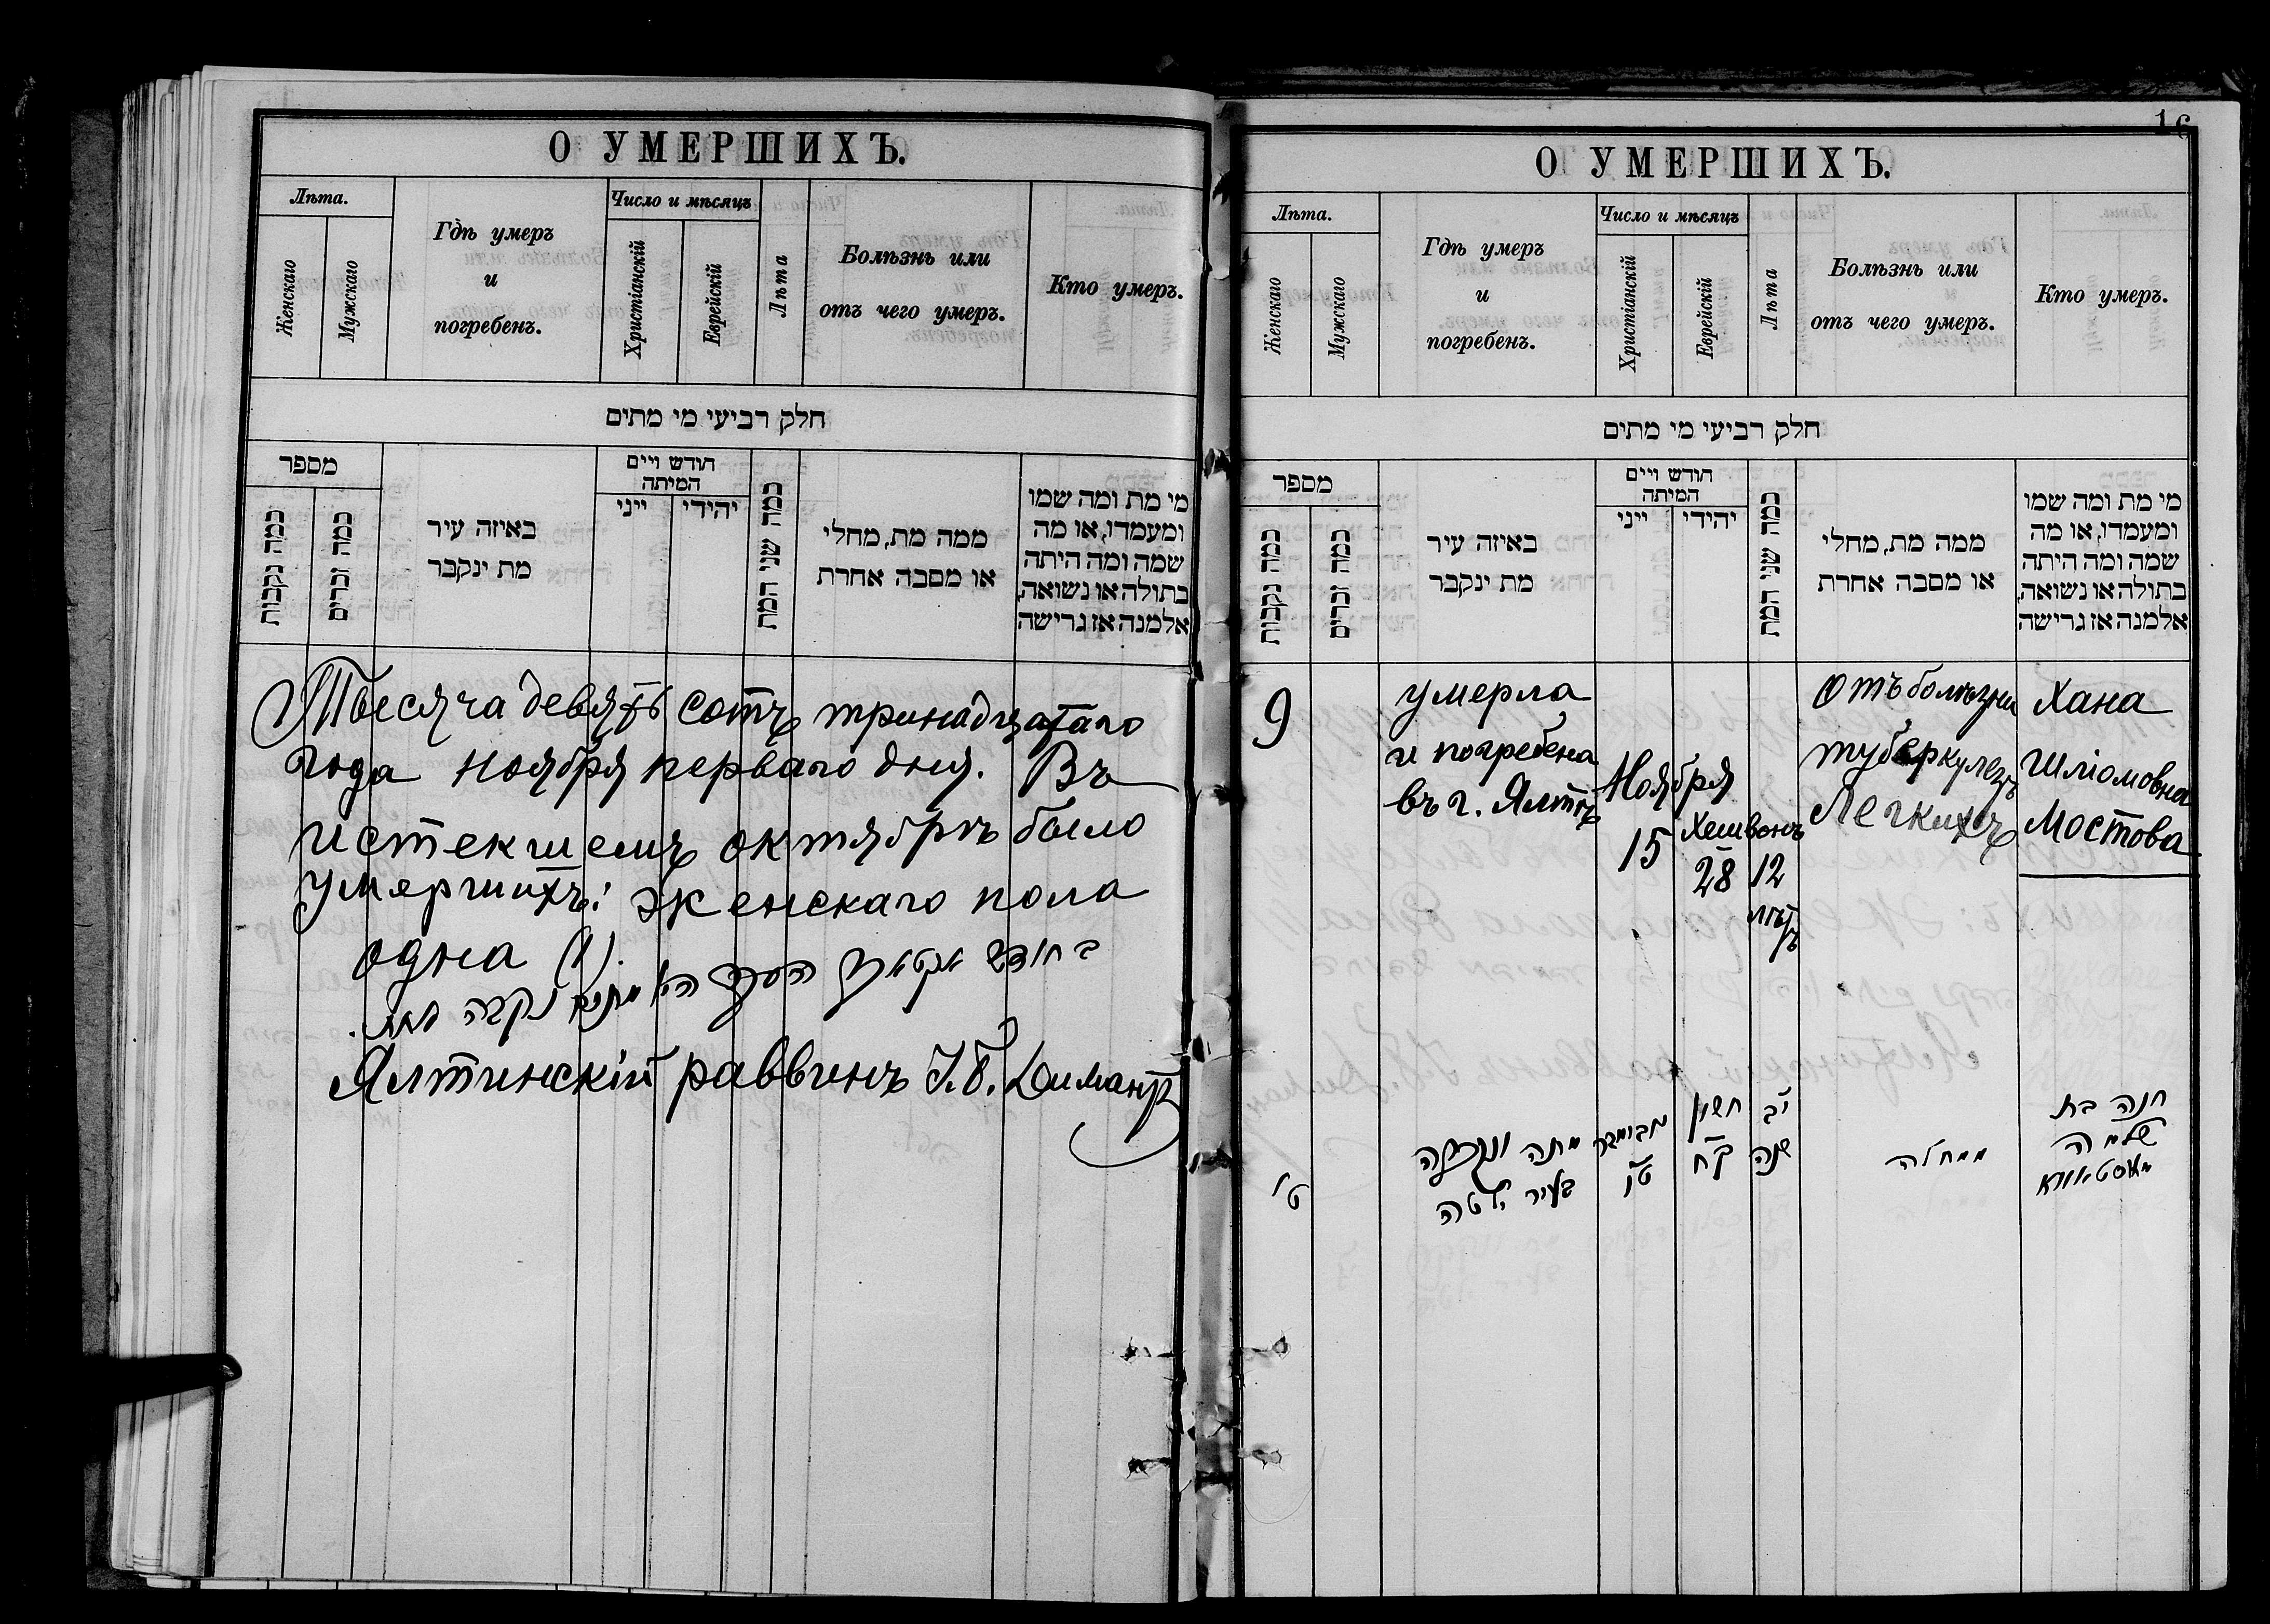 О УМЕРШИХЪ.
Лѣта.
Женскаго
Мужскаго
Гдѣ умеръ
и
погребенъ.
Число и мѣсяцъ
Христіанскій
Еврейскій
Лѣта
Болѣзнь или
отъ чего умеръ.
Кто умеръ.
חלק רביעי מי מתים
מספר
כמה נקבות
כמה זכרים
באיזה עיר
מת ינקבר
חודש ויים
המיתה
ייני
יהודי
כמה שני המת
ממה מת, מחלי
או מסבה אחרת
מי מת ומה שמו
ומעמדו, או מה
שמה ומה היתה
בתולה או נשואה,
אלמנה אז גרישה
Тысяча девятьсотъ тринадцатаго
года ноября перваго дня. Въ
истекшемъ октябрѣ было
умершихъ: женскаго пола
одна (1).
בחודש
נקבה אחת.
Ялтинскій раввинъ I.Б. Димантъ
16
О УМЕРШИХЪ.
Лѣта.
Женскаго
Мужскаго
Гдѣ умеръ
и
погребенъ.
Число и мѣсяцъ
Христіанскій
Еврейскій
Лѣта
Болѣзнь или
отъ чего умеръ.
Кто умеръ.
חלק רביעי מי מתים
מספר
כמה נקבות
כמה זכרים
באיזה עיר
מת ינקבר
חודש ויים
המיתה
ייני
יהודי
כמה שני המת
ממה מת, מחלי
או מסבה אחרת
מי מת ומה שמו
ומעמדו, או מה
שמה ומה היתה
בתולה או נשואה,
אלמנה אז גרישה
9
умерла
и погребена
въ г. Ялтѣ
Ноября
15
Хешвонъ
28
12
лѣтъ
отъ болѣзни
туберкулезъ
легкихъ
Хана
Шліомовна
Мостова
ט'
מתה ונקברה
בעיר ילטה
נאיאבר
ט"ו
חשון
כ"ח
י"ב
שנה
ממחלה
חנה בת
שלמה
מאסטאווא